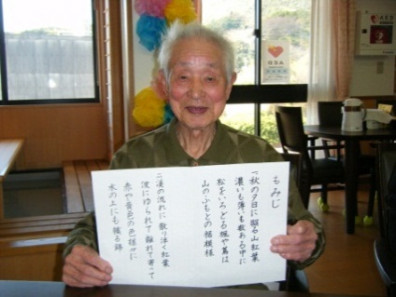 もみじ
一、秋の夕日に照る山紅葉
濃いも薄いも数ある中に
松をいろどる楓や蔦は
山のふもとの裾模様
二、溪の流れに散り浮く紅葉
波にゆられて離れて寄って
赤や黄色の色様々に
水の上にも織る錦
AED